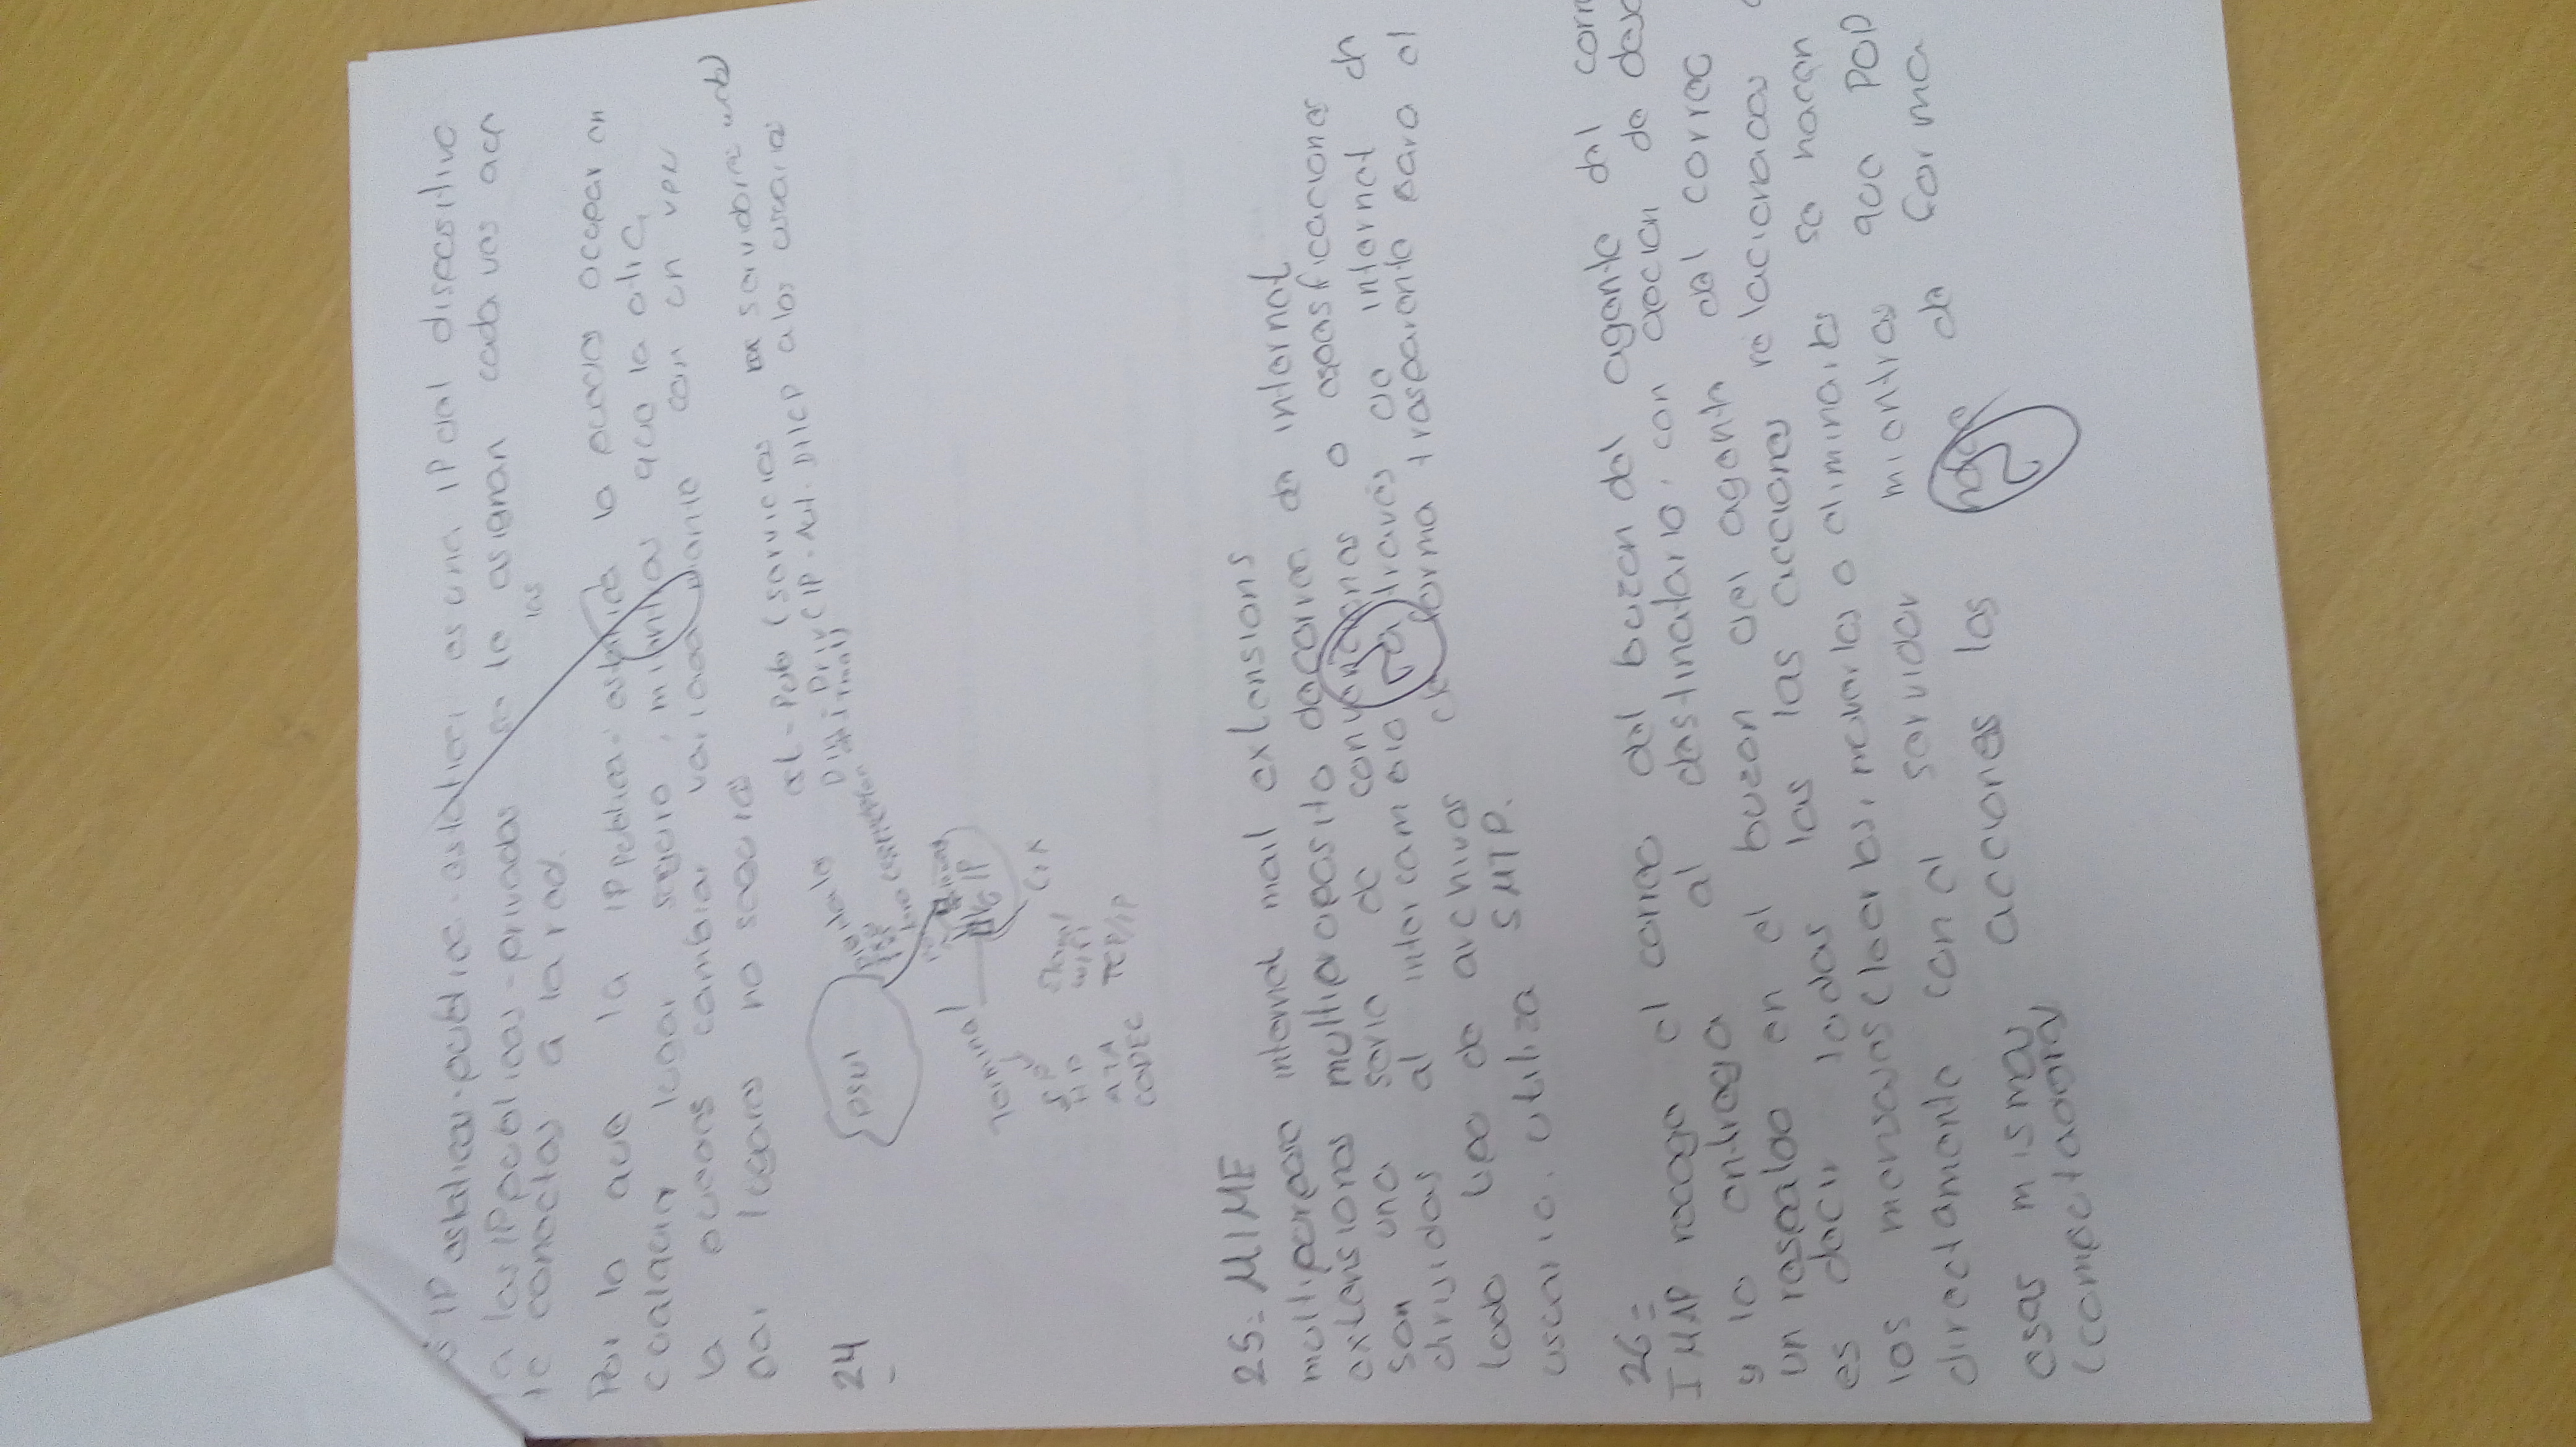 IP estatica-publica estatica es una IP del dispositivo
a las IP publicas-privadas se le asignan cada ves aer
te conectas a la red.
las
Por lo que la IP publica-estatica la puedes ocupar en
cualquier lugar seguro, mientras que la otra
la puedes cambiar variadamente con un VPN
par lugares no seguros
st-Pub (servicios servidores web)
Din-Priv (IP-Aut. DHCP a los usuarios
24
PSTN
Terminal
IP
ATA
CODEC
WIFI
TCP/IP
25= MIME
multipurpose internet mail extensions
extensiones multiproposito de correo de internet
son una serie de convenciones o espesficaciones
dirijidas al intercambio a través de internet de
todo tipo de archivos de forma trasparente para el
usuario. utiliza SMTP.
26=
IMAP recoge el correo del buzon del agente del corr
y lo entrega al destinatario con opcion de desc
un respaldo en el buzon del agente del correo
es decir todas las las acciones relacionadas
los mensajes (leerlos, moverlos o eliminarlos se hacen
directamente con el servidor mientras que POP
esas mismas acciones los hace de forma
(computadora)